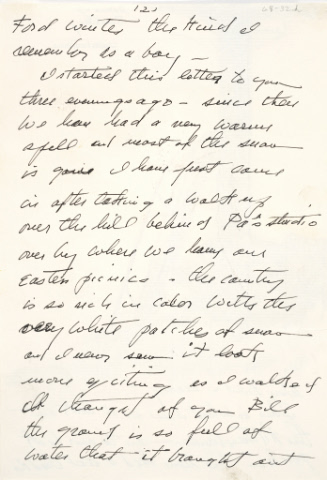 (2)
Ford winter the kind I
remember as a boy —
I started this letter to you
three evenings ago — since then
we have had a very warm
spell and most of the snow
is gone I have just come
in after taking a walk up
over the hill behind Pa's studio
over by where we have our
Easter picnics — the country
is so rich in color with the
very white patches of snow
and I never saw it look
more exciting as I walked
I thought of you Bill
the ground is so full of
water that it brought out